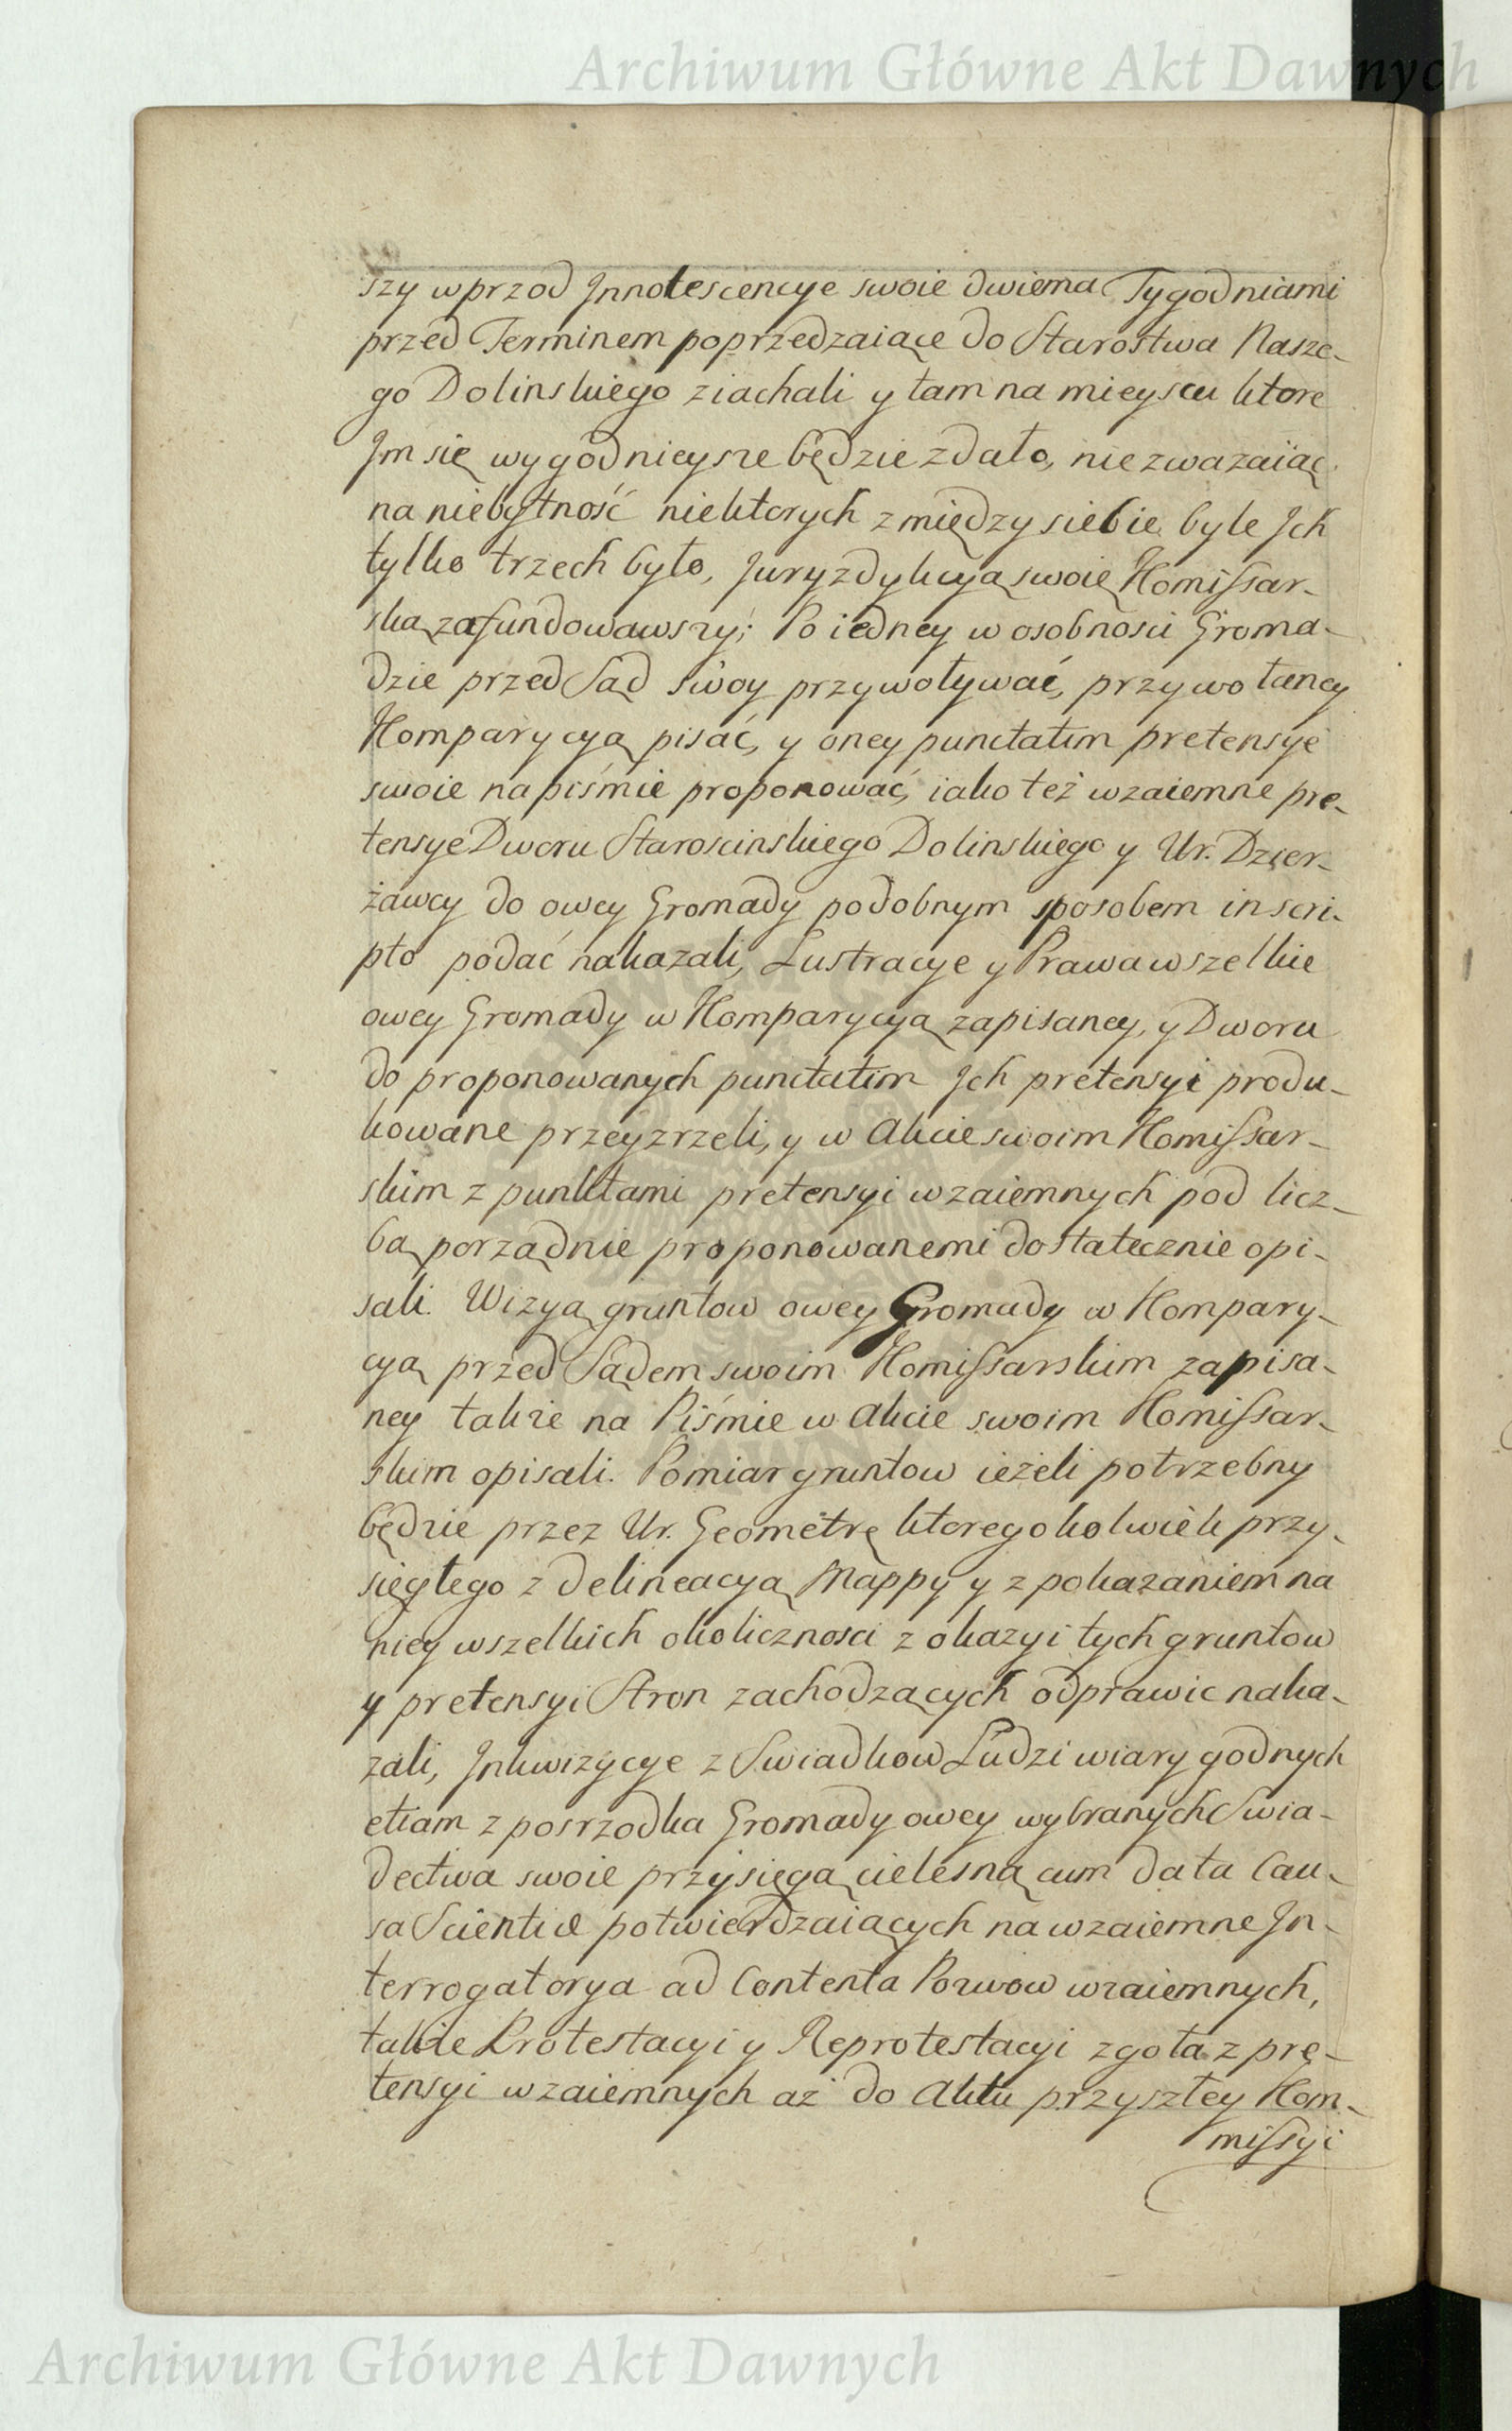 Archiwum Główne Akt Dawnych
szy wprzod Innotescencye swoie dwiema Tygodniami
przed Terminem poprzedzaiące do Starostwa Nasze-
go Dolinskiego ziachali y tam na mieyscu ktore
Im się wygodnieysze będzie zdało, nie zwazaiąc
na niebytność niektorych z między siebie byle Ich
tylko trzech było, Juryzdykcyą swoię Komissar-
ską zafundowawszy; Po iedney w osobnosci Groma-
dzie przed Sąd Swoy przywoływać, przywołaney
Komparycyą pisać, y oney punctatim pretensye
swoie na piśmie proponować, iako też wzaiemne pre-
tensye Dworu Staroscinskiego Dolinskiego y Ur. Dzier-
żawcy do owey Gromady podobnym sposobem in scri-
pto podać nakazali, Lustracye y Prawa wszelkie
owey Gromady w Komparycyą zapisaney, y Dworu
do proponowanych punctatim Ich pretensyi produ-
kowane przeyzrzeli, y w Akcie swoim Komissar-
skim z punktami pretensyi wzaiemnych pod licz-
bą porządnie proponowanemi dostatecznie opi-
sali. Wizyą gruntow owey Gromady w Kompary-
cyą przed Sądem swoim Komissarskim zapisa-
ney takze na Piśmie w Akcie swoim Komissar-
skim opisali. Pomiar gruntow ieżeli potrzebny
będzie przez Ur. Geometrę ktoregokolwiek przy-
sięgłego z delineacyą Mappy y z pokazaniem na
niey wszelkich okolicznosci z okazyi tych gruntow
y pretensyi Stron zachodzących odprawic naka-
zali, Inkwizycye z Swiadkow Ludzi wiary godnych
etiam z posrzodka Gromady owey wybranych Swia-
dectwa swoie przysięgą cielesną cum data Cau-
sa Scientiæ potwierdzaiących na wzaiemne In-
terrogatorya ad Contenta Pozwow wzaiemnych,
takze Protestacyi y Reprotestacyi zgoła z pre-
tensyi wzaiemnych az do Aktu przyszłey Kom-
missyi
Archiwum Główne Akt Dawnych